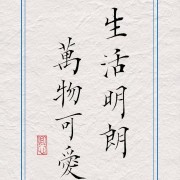 生活明朗
萬物可愛